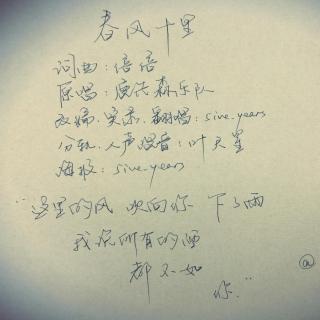 春风十里
词曲：倍倍
原唱：鹿先森乐队
改编、实录、翻唱：sive.years
分轨、人声混音：叶天星
海报：sive.years
"这里的风 吹向你 下了雨
我说所有的酒
都不如
你."
@